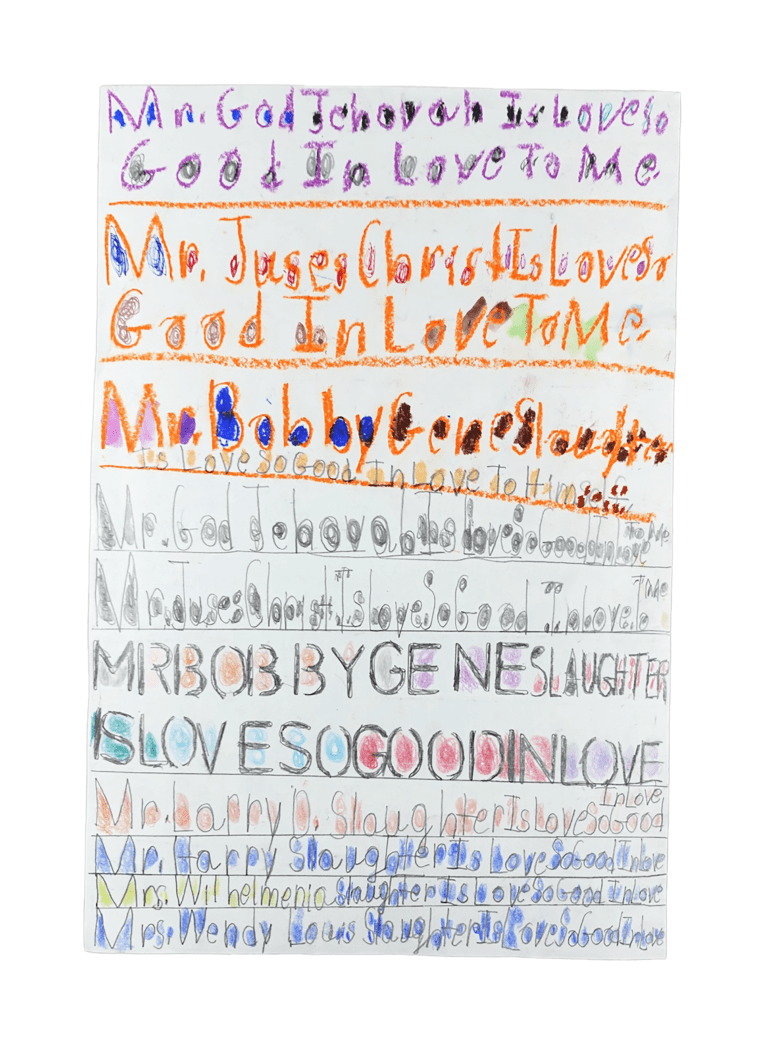 Mr. God Jehovah Is Love So
Good In Love To Me
Mr. Juses Christ Is Love So
Good In Love To Me
Mr. Bobby Gene Slaughter
Is Love So Good In Love To Himself
Mr. God Jehovah Is Love So Good In Love To Me
Mr. Juses Christ Is Love So Good In Love To Me
MR BOBBY GENE SLAUGHTER
IS LOVE SO GOOD IN LOVE
Mr. Larry D. Slaughter Is Love So Good In Love
Mr. Harry Slaughter Is Love So Good In Love
Mrs. Wilhelmenia Slaughter Is Love So Good In Love
Mrs. Wendy Louis Slaughter Is Love So Good In Love